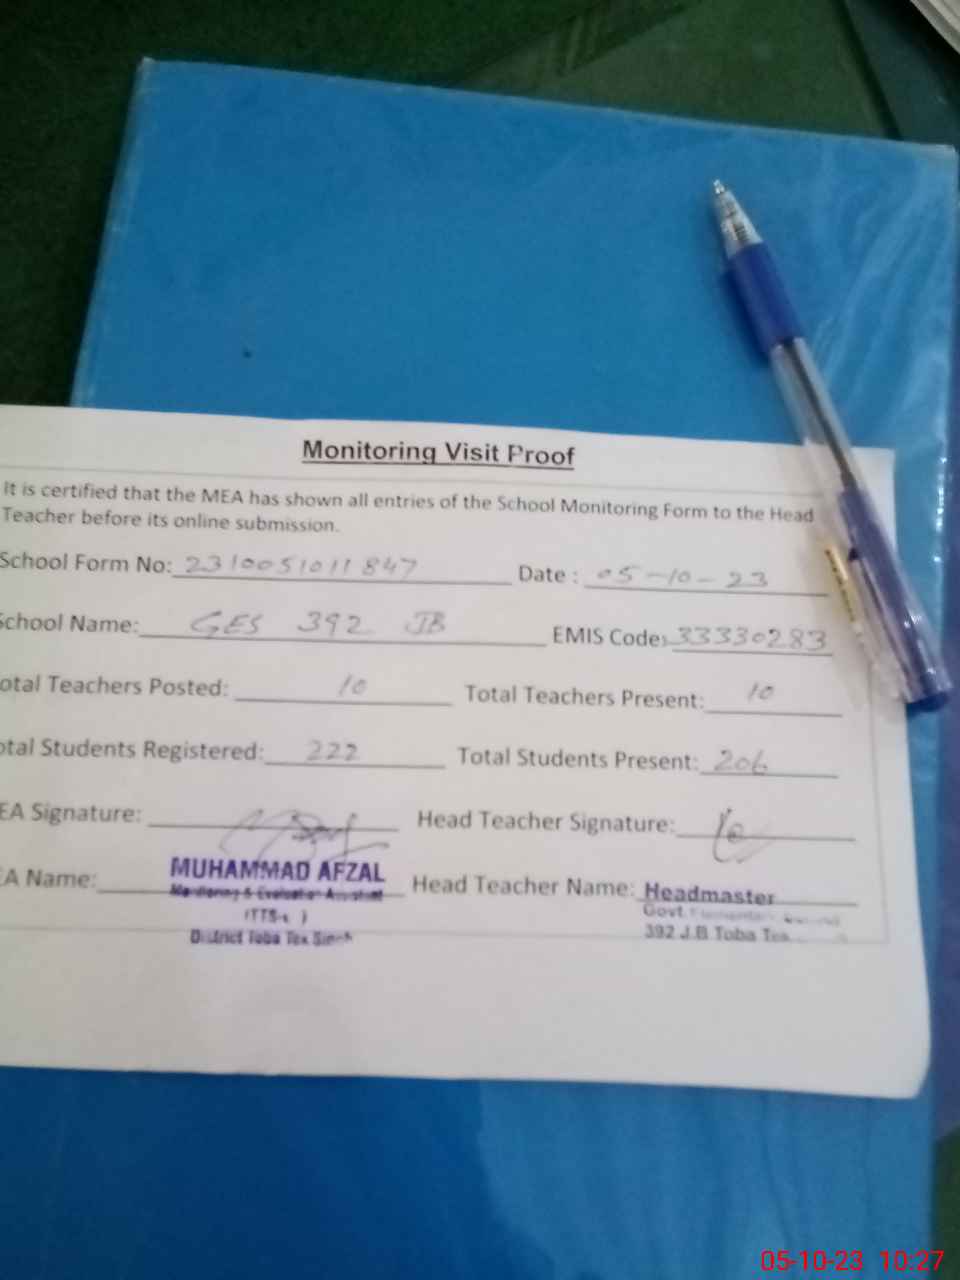 Monitoring Visit Proof
It is certified that the MEA has shown all entries of the School Monitoring Form to the Head
Teacher before its online submission.
School Form No: 2310051011847 Date : 05-10-23
School Name: GES 392 JB EMIS Code: 33330283
otal Teachers Posted: 10 Total Teachers Present: 10
otal Students Registered: 222 Total Students Present: 206
EA Signature: Head Teacher Signature:
EA Name: MUHAMMAD AFZAL Head Teacher Name: Headmaster
Monitoring & Evaluation Assistant Govt. Elementary
District Toba Tek Singh 392 J.B Toba Tek
05-10-23 10:27